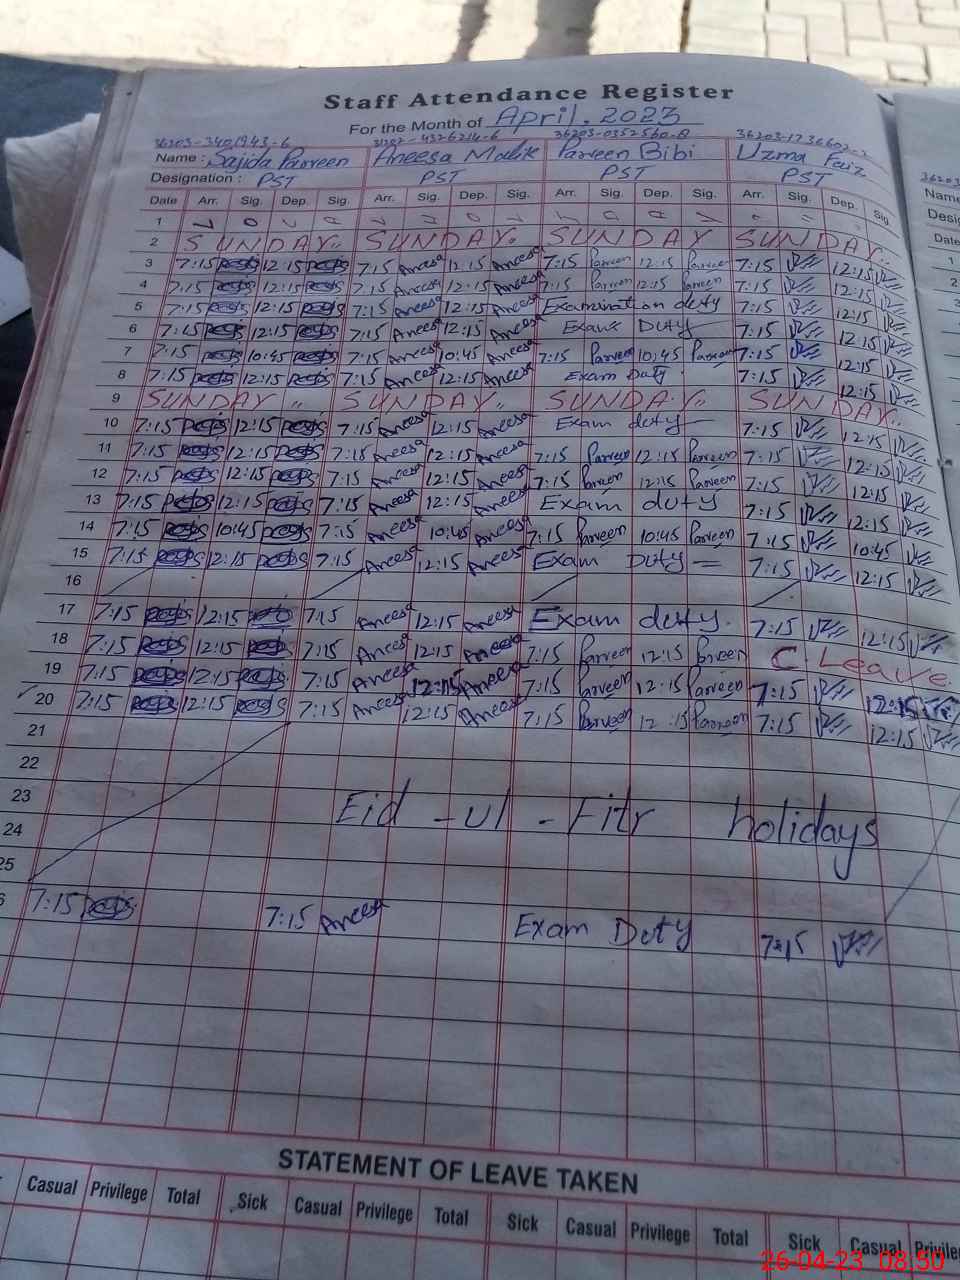 Staff Attendance Register
For the Month of April, 2023
Name: Sajida Parveen Aneesa Malik Parveen Bibi Uzma Faiz Name
Designation: PST PST PST PST
Date Arr. Sig. Dep. Sig. Arr. Sig. Dep. Sig. Arr. Sig. Dep. Sig. Arr. Sig. Dep. Sig. Date
1
2 SUNDAY.. SUNDAY. SUNDAY SUNDAY..
3 7:15 12:15 7:15 Aneesa 12:15 Aneesa 7:15 Parveen 12:15 Parveen 7:15 12:15
4 7:15 12:15 7:15 Aneesa 12:15 Aneesa 7:15 Parveen 12:15 Parveen 7:15 12:15
5 7:15 12:15 7:15 Aneesa 12:15 Aneesa Examination duty 7:15 12:15
6 7:15 12:15 7:15 Aneesa 12:15 Aneesa Exam Duty 7:15 12:15
7 7:15 10:45 7:15 Aneesa 10:45 Aneesa 7:15 Parveen 10:45 Parveen 7:15 12:15
8 7:15 12:15 7:15 Aneesa 12:15 Aneesa Exam Duty 7:15 12:15
9 SUNDAY.. SUNDAY.. SUNDAY.. SUNDAY..
10 7:15 12:15 7:15 Aneesa 12:15 Aneesa Exam duty 7:15 12:15
11 7:15 12:15 7:15 Aneesa 12:15 Aneesa 7:15 Parveen 12:15 Parveen 7:15 12:15
12 7:15 12:15 7:15 Aneesa 12:15 Aneesa 7:15 Parveen 12:15 Parveen 7:15 12:15
13 7:15 12:15 7:15 Aneesa 12:15 Aneesa Exam duty 7:15 12:15
14 7:15 10:45 7:15 Aneesa 10:45 Aneesa 7:15 Parveen 10:45 Parveen 7:15 10:45
15 7:15 12:15 7:15 Aneesa 12:15 Aneesa Exam Duty 7:15 12:15
16
17 7:15 12:15 7:15 Aneesa 12:15 Aneesa Exam duty. 7:15 12:15
18 7:15 12:15 7:15 Aneesa 12:15 Aneesa 7:15 Parveen 12:15 Parveen C. Leave.
19 7:15 12:15 7:15 Aneesa 12:15 Aneesa 7:15 Parveen 12:15 Parveen 7:15 12:15
20 7:15 12:15 7:15 Aneesa 12:15 Aneesa 7:15 Parveen 12:15 Parveen 7:15 12:15
21
22
23 Eid-ul-Fitr holidays
24
25
6 7:15 7:15 Aneesa Exam Duty 7:15
STATEMENT OF LEAVE TAKEN
Casual Privilege Total Sick Casual Privilege Total Sick Casual Privilege Total Sick Casual Privilege
26-04-23 08:50